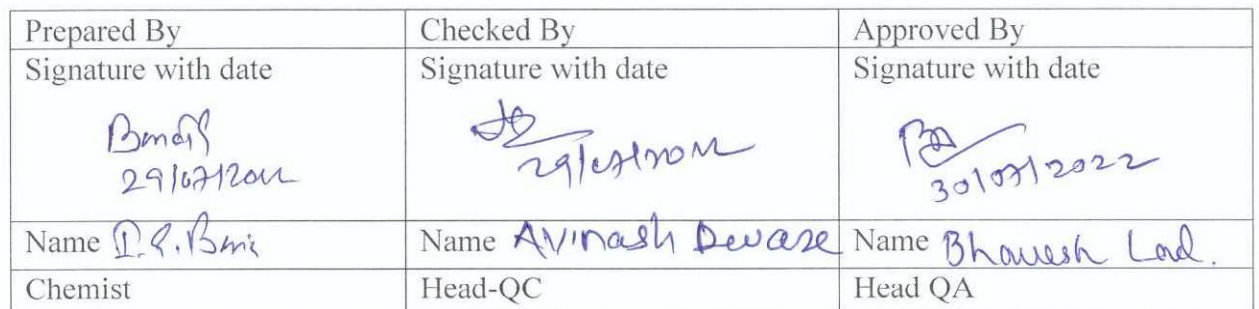 Prepared By Checked By Approved By
Signature with date Signature with date Signature with date
30/07/2022
Name Name Avinash Deware Name Bhavesh Lad.
Chemist Head-QC Head QA